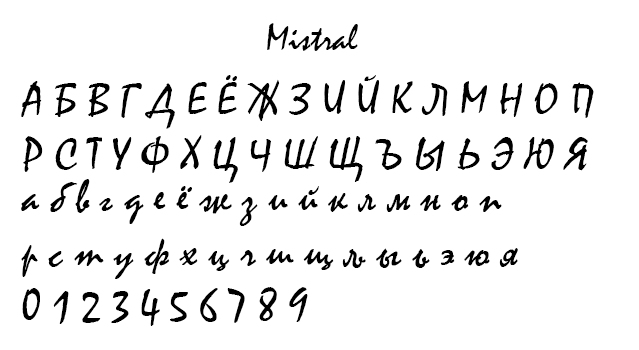 Mistral
А Б В Г Д Е Ё Ж З И Й К Л М Н О П
Р С Т У Ф Х Ц Ч Ш Щ Ъ Ы Ь Э Ю Я
а б в г д е ё ж з и й к л м н о п
р с т у ф х ц ч ш щ ъ ы ь э ю я
0 1 2 3 4 5 6 7 8 9